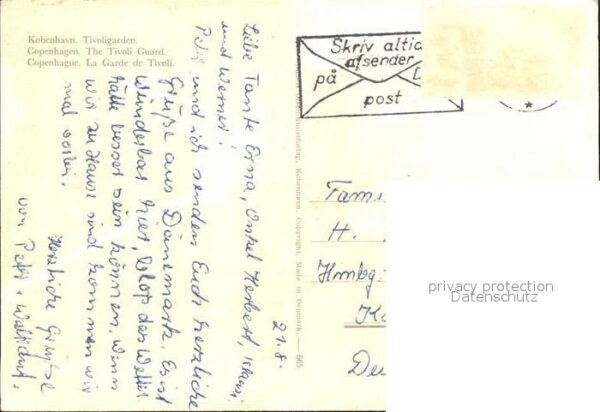 København. Tivoligarden.
Copenhagen. The Tivoli Guard.
Copenhague. La Garde de Tivoli.
Skriv altid
afsender
på
post
21.8.
Liebe Tante Erna, Onkel Herbert, Klaus
und Werner!
Peter und ich senden Euch herzliche
Grüße aus Dänemark. Es ist
wunderbar hier, bloß das Wetter
hätte besser sein können. Wenn
wir zu Hause sind kommen wir
mal vorbei.
Herzliche Grüße
von Peter + Waltraut.
Kunstforlag, København. Copyright. Made in Denmark. — 665
Fam
H.
Hmbg.
K
De
privacy protection
Datenschutz